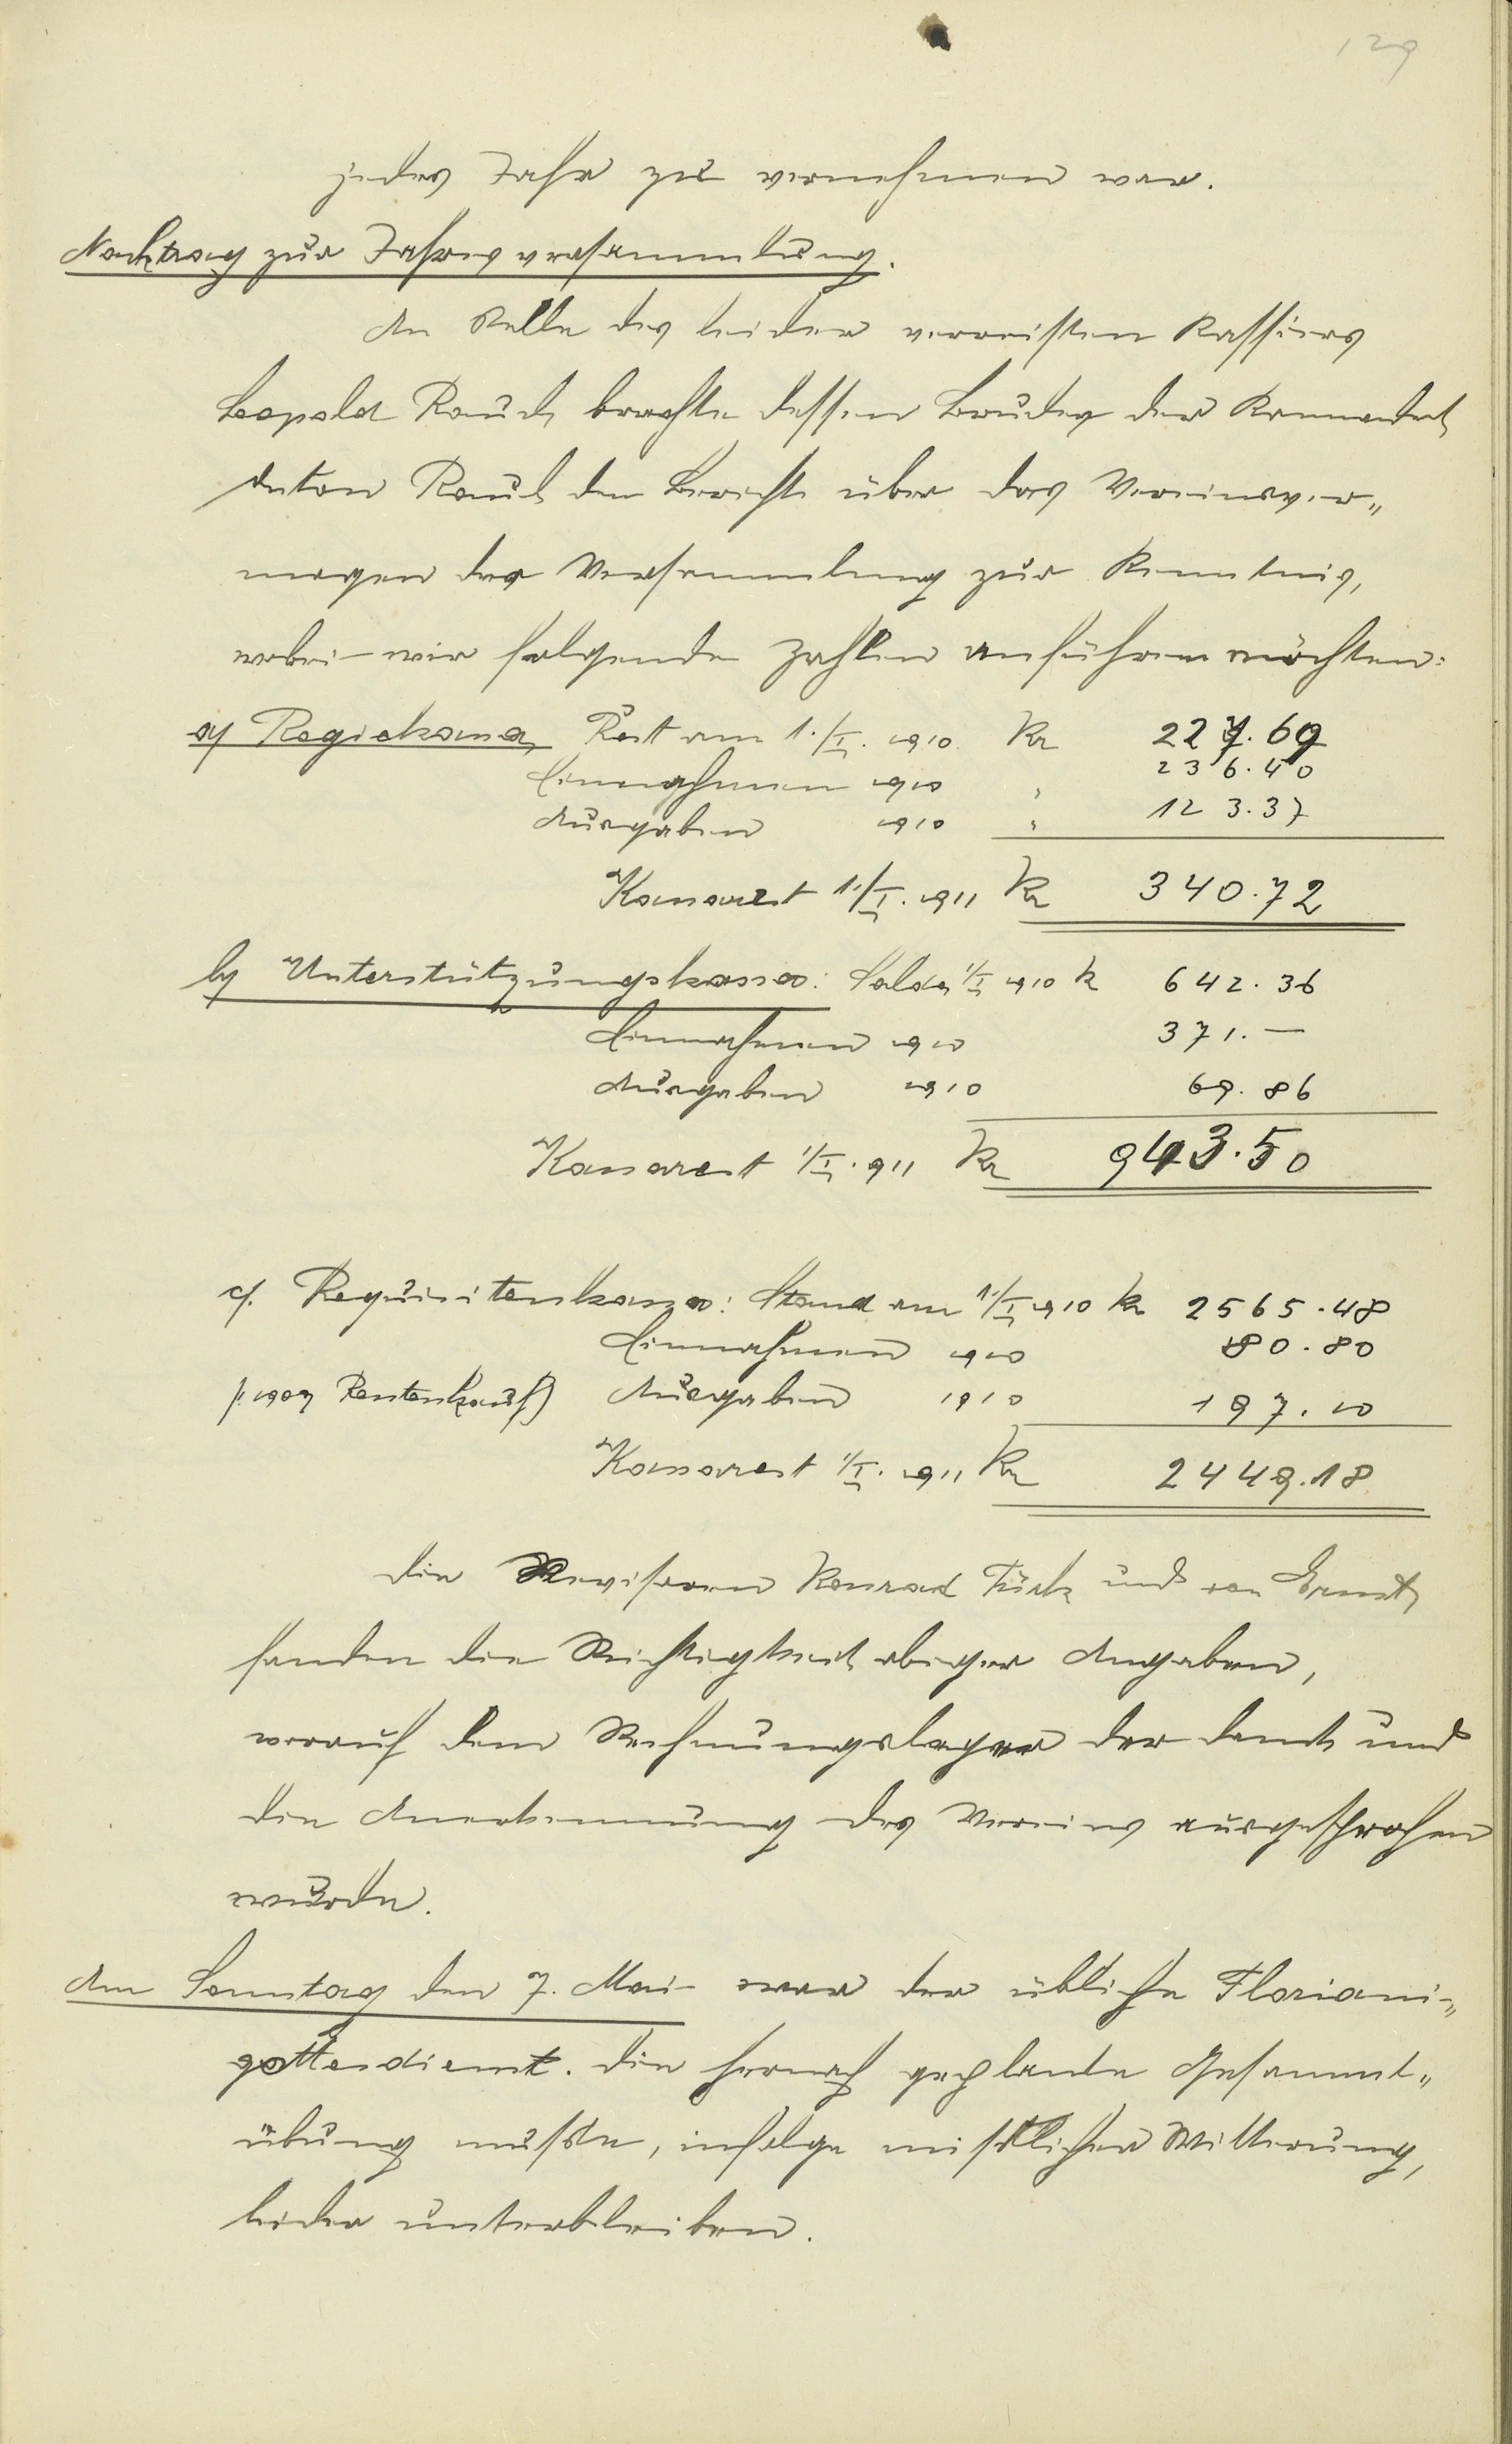 129
jedes Jahr zu vernehmen war.
Nachtrag zur Jahresversammlung.
An Stelle des leider verreisten Kassiers
Leopold Rauch brachte dessen Bruder der Kommandant
Anton Rauch den Bericht über das Vereinsver„
mögen der Versammlung zur Kenntnis,
wobei wir folgende Zahlen anführen möchten:
a) Regiekassa, Rest am 1./I. 1910. Kr 227.69
Einnahmen 1910 " 236.40
Ausgaben 1910 " 123.37
Kassarest 1./I. 1911 Kr 340.72
b) Unterstützungskassa: Saldo 1/I 1910 K 642.36
Einnahmen 1910 371.—
Ausgaben 1910 69.86
Kassarest 1/I. 911 Kr 943.50
c). Requisitenkassa: Stand am 1/I 1910 Kr 2565.48
Einnahmen 1910 80.80
Rentenkauf) Ausgaben 1910 197.10
Kassarest 1/I. 1911 Kr 2449.18
Die Revisoren Konrad Türk und Ernst
fanden die Richtigkeit obiger Angaben,
worauf dem Rechnungsleger der Dank und
die Anerkennung des Vereins ausgesprochen
wurde.
Am Sonntag den 7. Mai war der übliche Floriani„
gottesdienst. Die hernach geplante Gesammt„
übung mußte, infolge mißlicher Witterung,
leider unterbleiben.